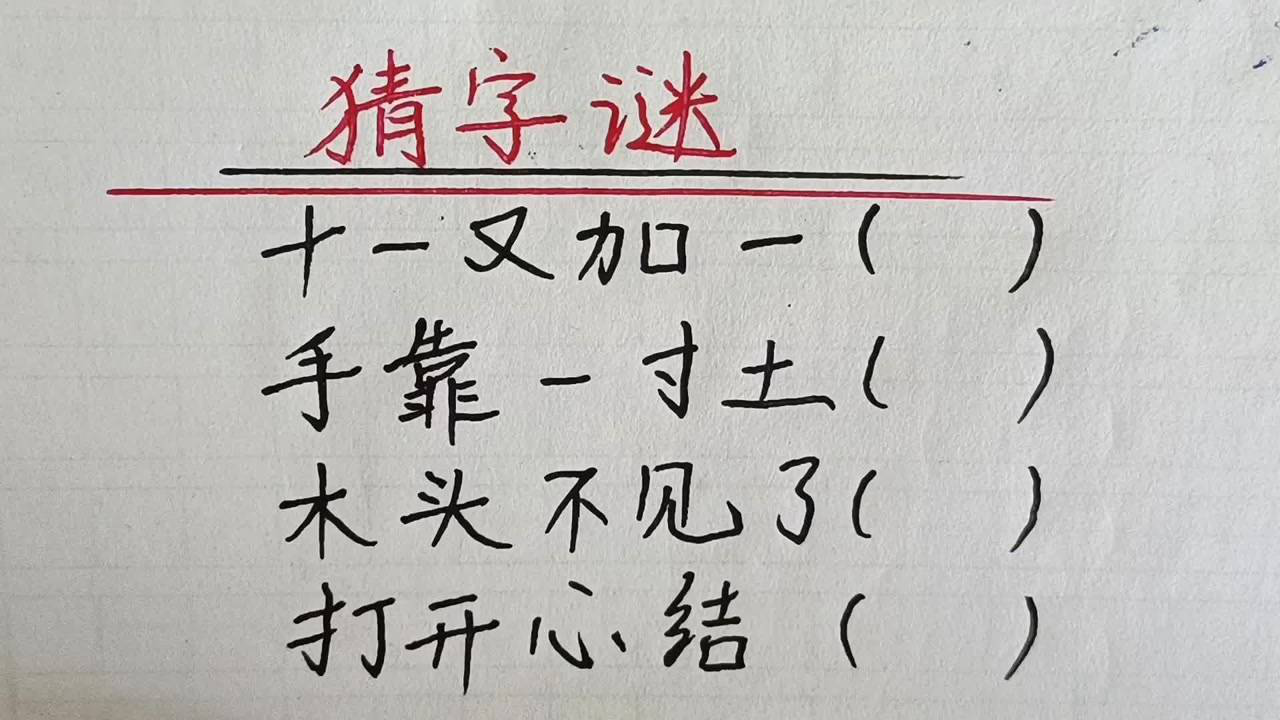 猜字谜
十一又加一（　）
手靠一寸土（　）
木头不见了（　）
打开心结（　）